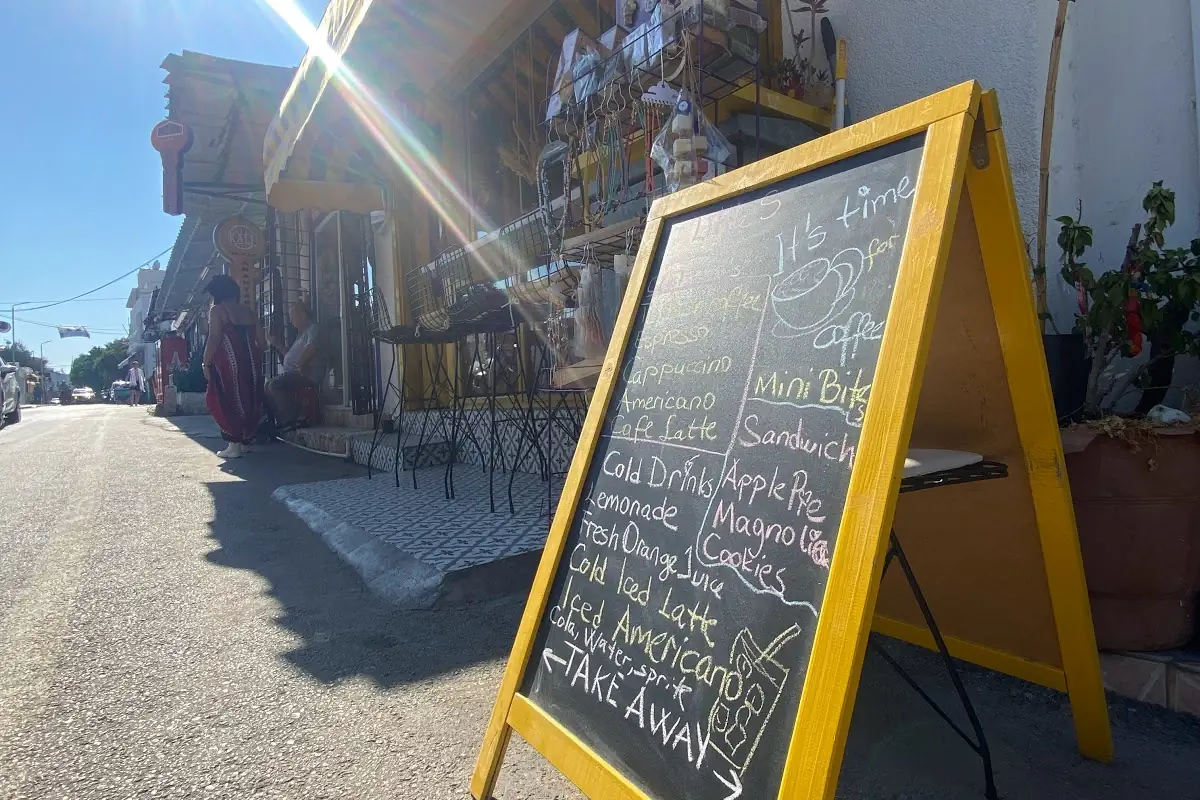 It's time
for
coffee
Espresso
Cappuccino
Americano
Cafe Latte
Cold Drinks
Lemonade
Fresh Orange Juice
Cold Iced Latte
Iced Americano
Cola, Water, Sprite
TAKE AWAY
Mini Bites
Sandwich
Apple Pie
Magnolia
Cookies